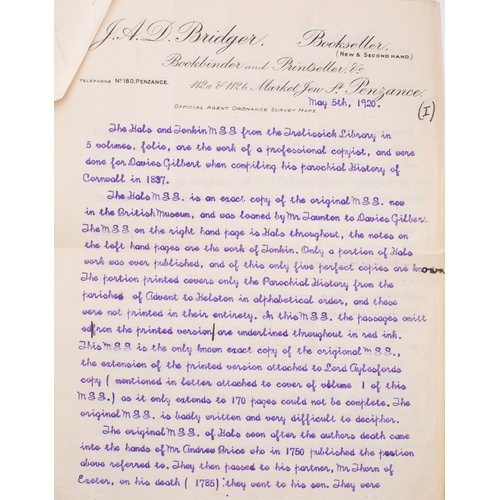 J.A.D. Bridger. Bookseller.
(NEW & SECOND HAND.)
Bookbinder and Printseller, &c
TELEPHONE Nº 180, PENZANCE.
112a & 112b, Market Jew St. Penzance.
OFFICIAL AGENT ORDNANCE SURVEY MAPS.
May 5th, 1920.
(I)
The Hals and Tonkin MSS from the Trelissick Library in
5 volumes, folio, are the work of a professional copyist, and were
done for Davies Gilbert when compiling his parochial History of
Cornwall in 1837.
The Hals MSS. is an exact copy of the original MSS. now
in the British Museum, and was loaned by Mr Taunton to Davies Gilbert.
The MSS on the right hand page is Hals throughout, the notes on
the left hand pages are the work of Tonkin. Only a portion of Hals
work was ever published, and of this only five perfect copies are known
The portion printed covers only the Parochial History from the
parishes of Advent to Helston in alphabetical order, and these
were not printed in their entirety. In this MSS. the passages omitt
ed from the printed version are underlined throughout in red ink.
This MSS is the only known exact copy of the original MSS.,
the extension of the printed version attached to Lord Aylesfords
copy ( mentioned in letter attached to cover of volume 1 of this
MSS.) as it only extends to 170 pages could not be complete. The
original MSS. is badly written and very difficult to decipher.
The original MSS. of Hals soon after the authors death came
into the hands of Mr Andrew Brice who in 1750 published the portion
above referred to. They then passed to his partner, Mr Thorn of
Exeter, on his death ( 1785) they went to his son. They were